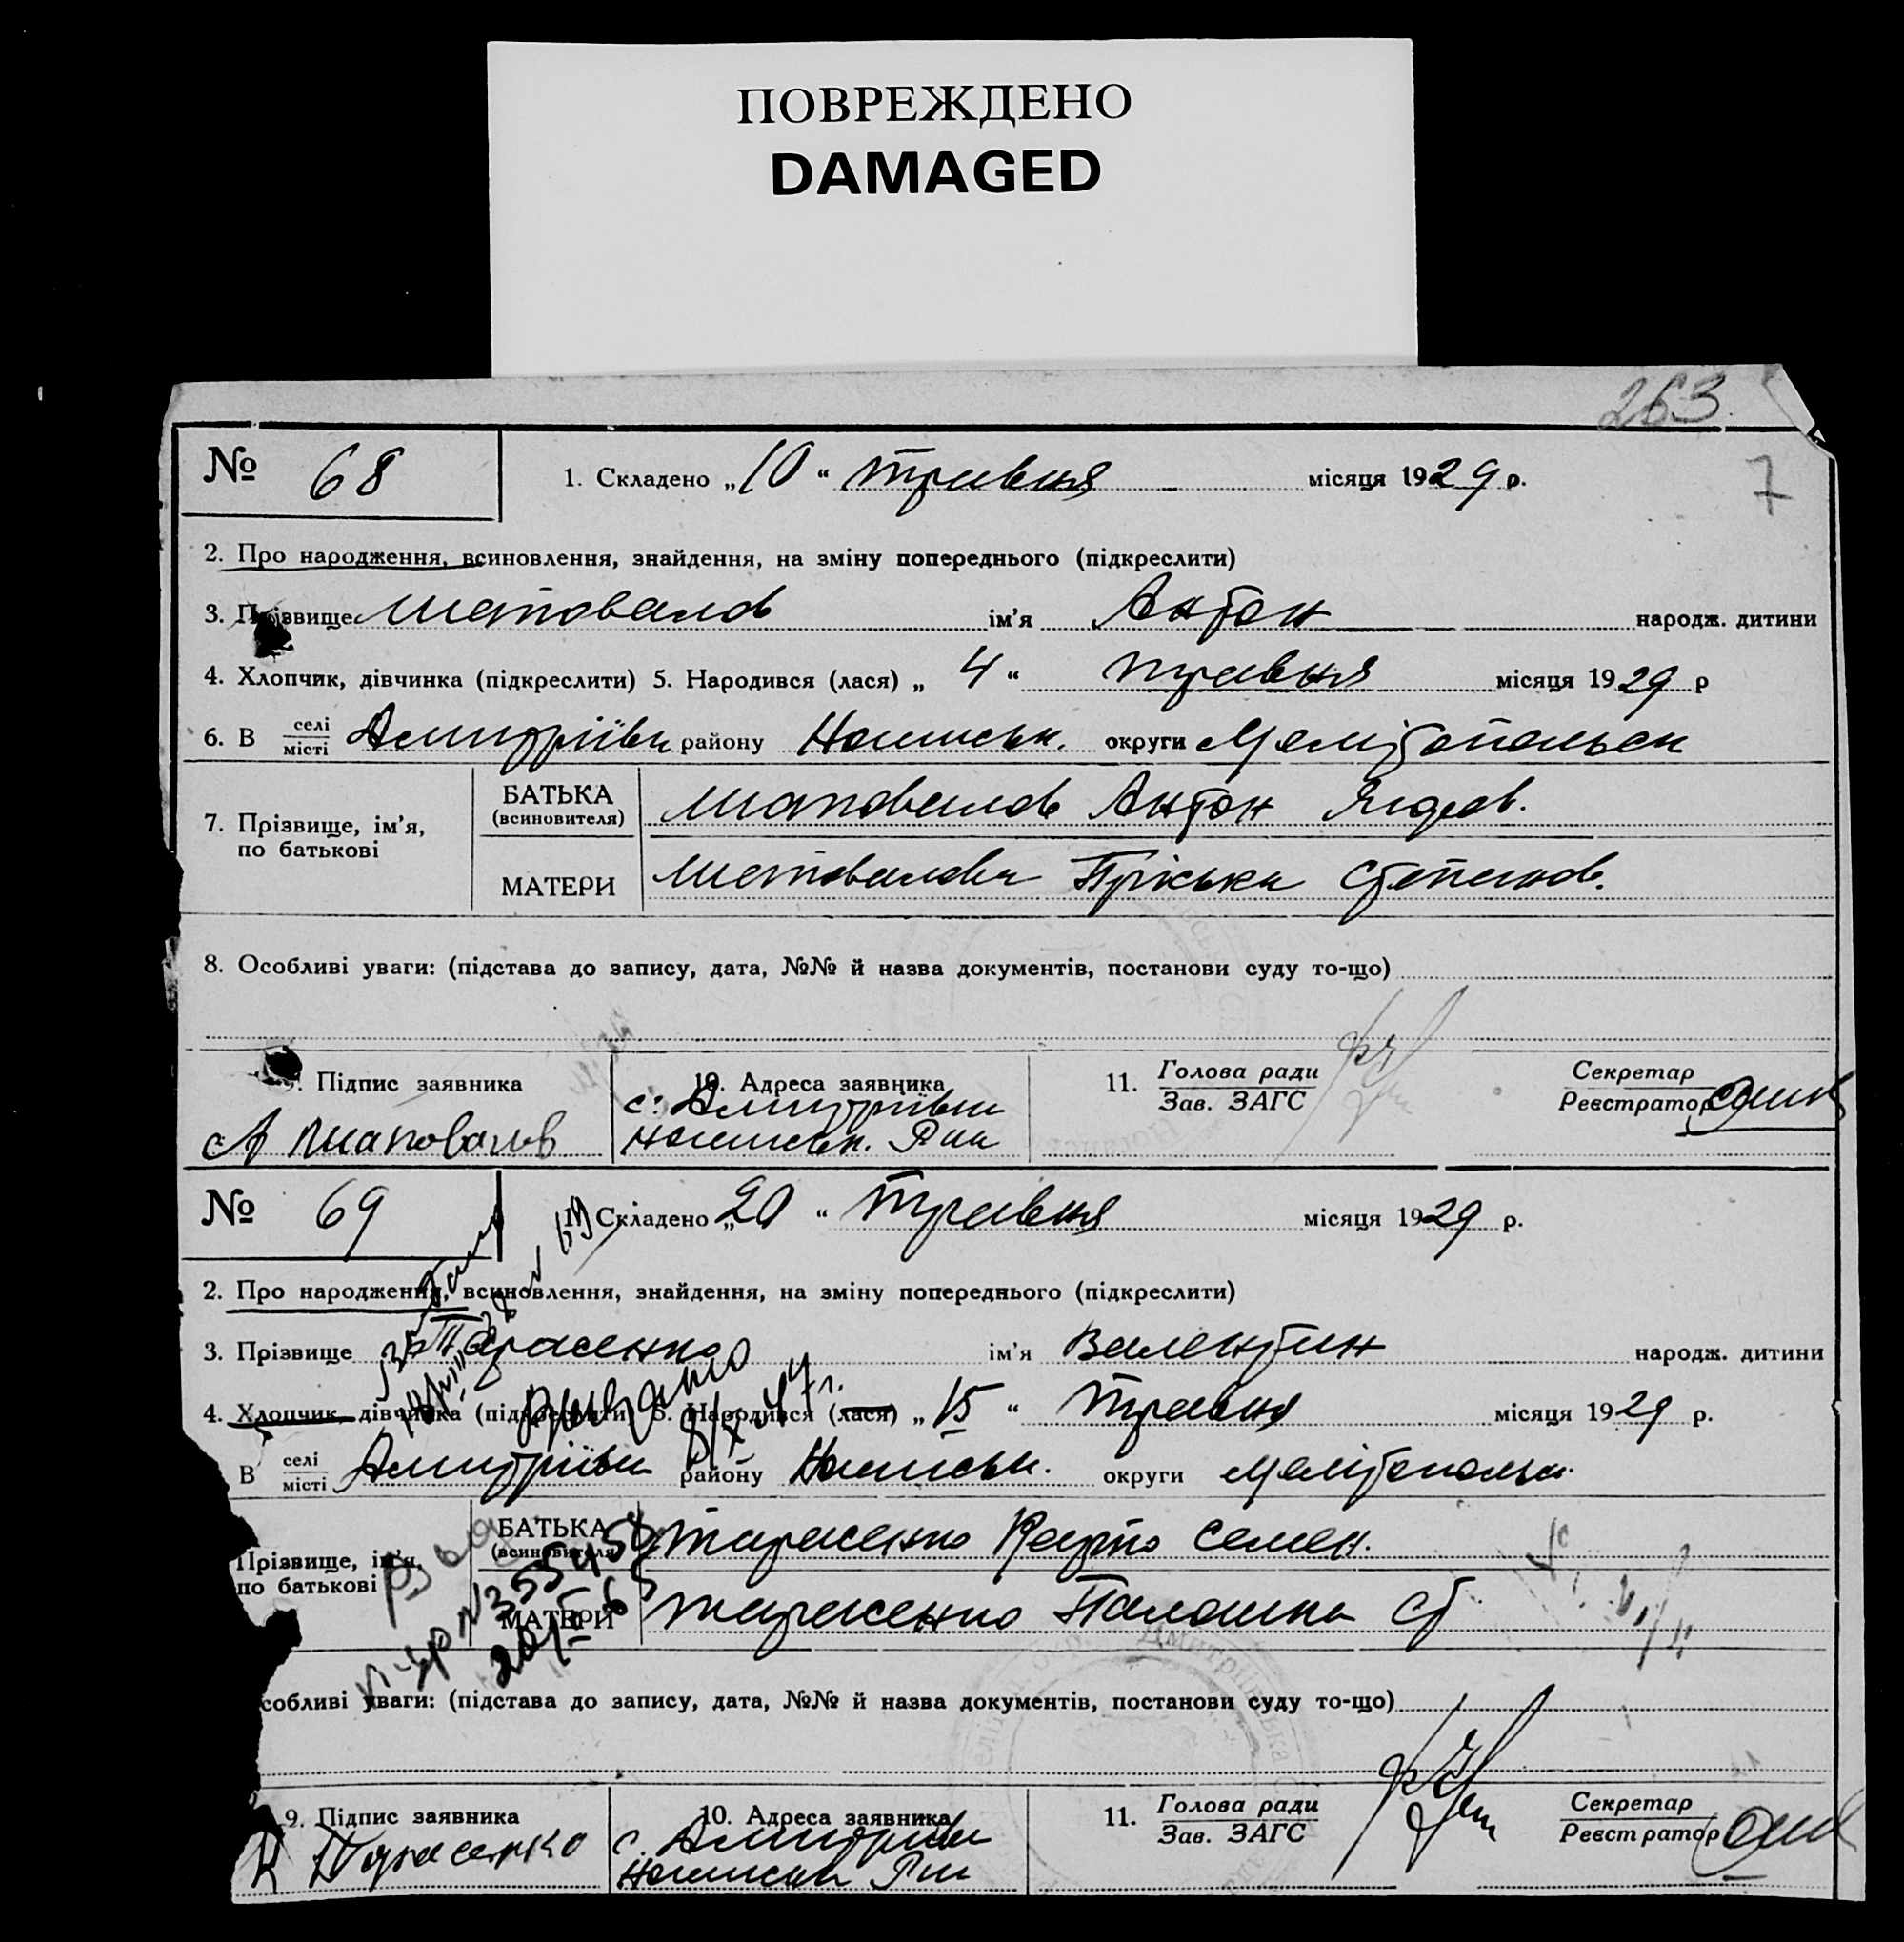 ПОВРЕЖДЕНО
DAMAGED
263
7
№ 68
1. Складено „10“ травня місяця 1929 р.
2. Про народження, всиновлення, знайдення, на зміну попереднього (підкреслити)
3. Прізвище Шаповалов ім'я Антон народж. дитини
4. Хлопчик, дівчинка (підкреслити) 5. Народився (лася) „ 4 “ травня місяця 1929 р
6. В селі місті Дмитріівка району Ногайськ. округи Мелітопольськ
7. Прізвище, ім'я, по батькові
БАТЬКА (всиновителя) Шаповалов Антон
МАТЕРИ Шаповалова Пріська Степанов.
8. Особливі уваги: (підстава до запису, дата, №№ й назва документів, постанови суду то-що)
9. Підпис заявника
А Шаповалов
10. Адреса заявника
с. Дмитріівки
Ногайськ. Р-ну
11. Голова ради
Зав. ЗАГС
Секретар
Реєстратор
№ 69
1. Складено „20“ травня місяця 1929 р.
2. Про народження, всиновлення, знайдення, на зміну попереднього (підкреслити)
3. Прізвище Тарасенко ім'я Валентин народж. дитини
4. Хлопчик, дівчинка (підкреслити) 5. Народився (лася) „15“ травня місяця 1929 р.
В селі місті Дмитріівки району Ногайськ. округи Мелітопольськ.
Прізвище, ім'я, по батькові
БАТЬКА (всиновителя) Тарасенко Карпо Семен.
МАТЕРИ Тарасенко Палашка Ст
собливі уваги: (підстава до запису, дата, №№ й назва документів, постанови суду то-що)
9. Підпис заявника
К Тарасенко
10. Адреса заявника
с. Дмитріівки
Ногайськ Р-ну
11. Голова ради
Зав. ЗАГС
Секретар
Реєстратор